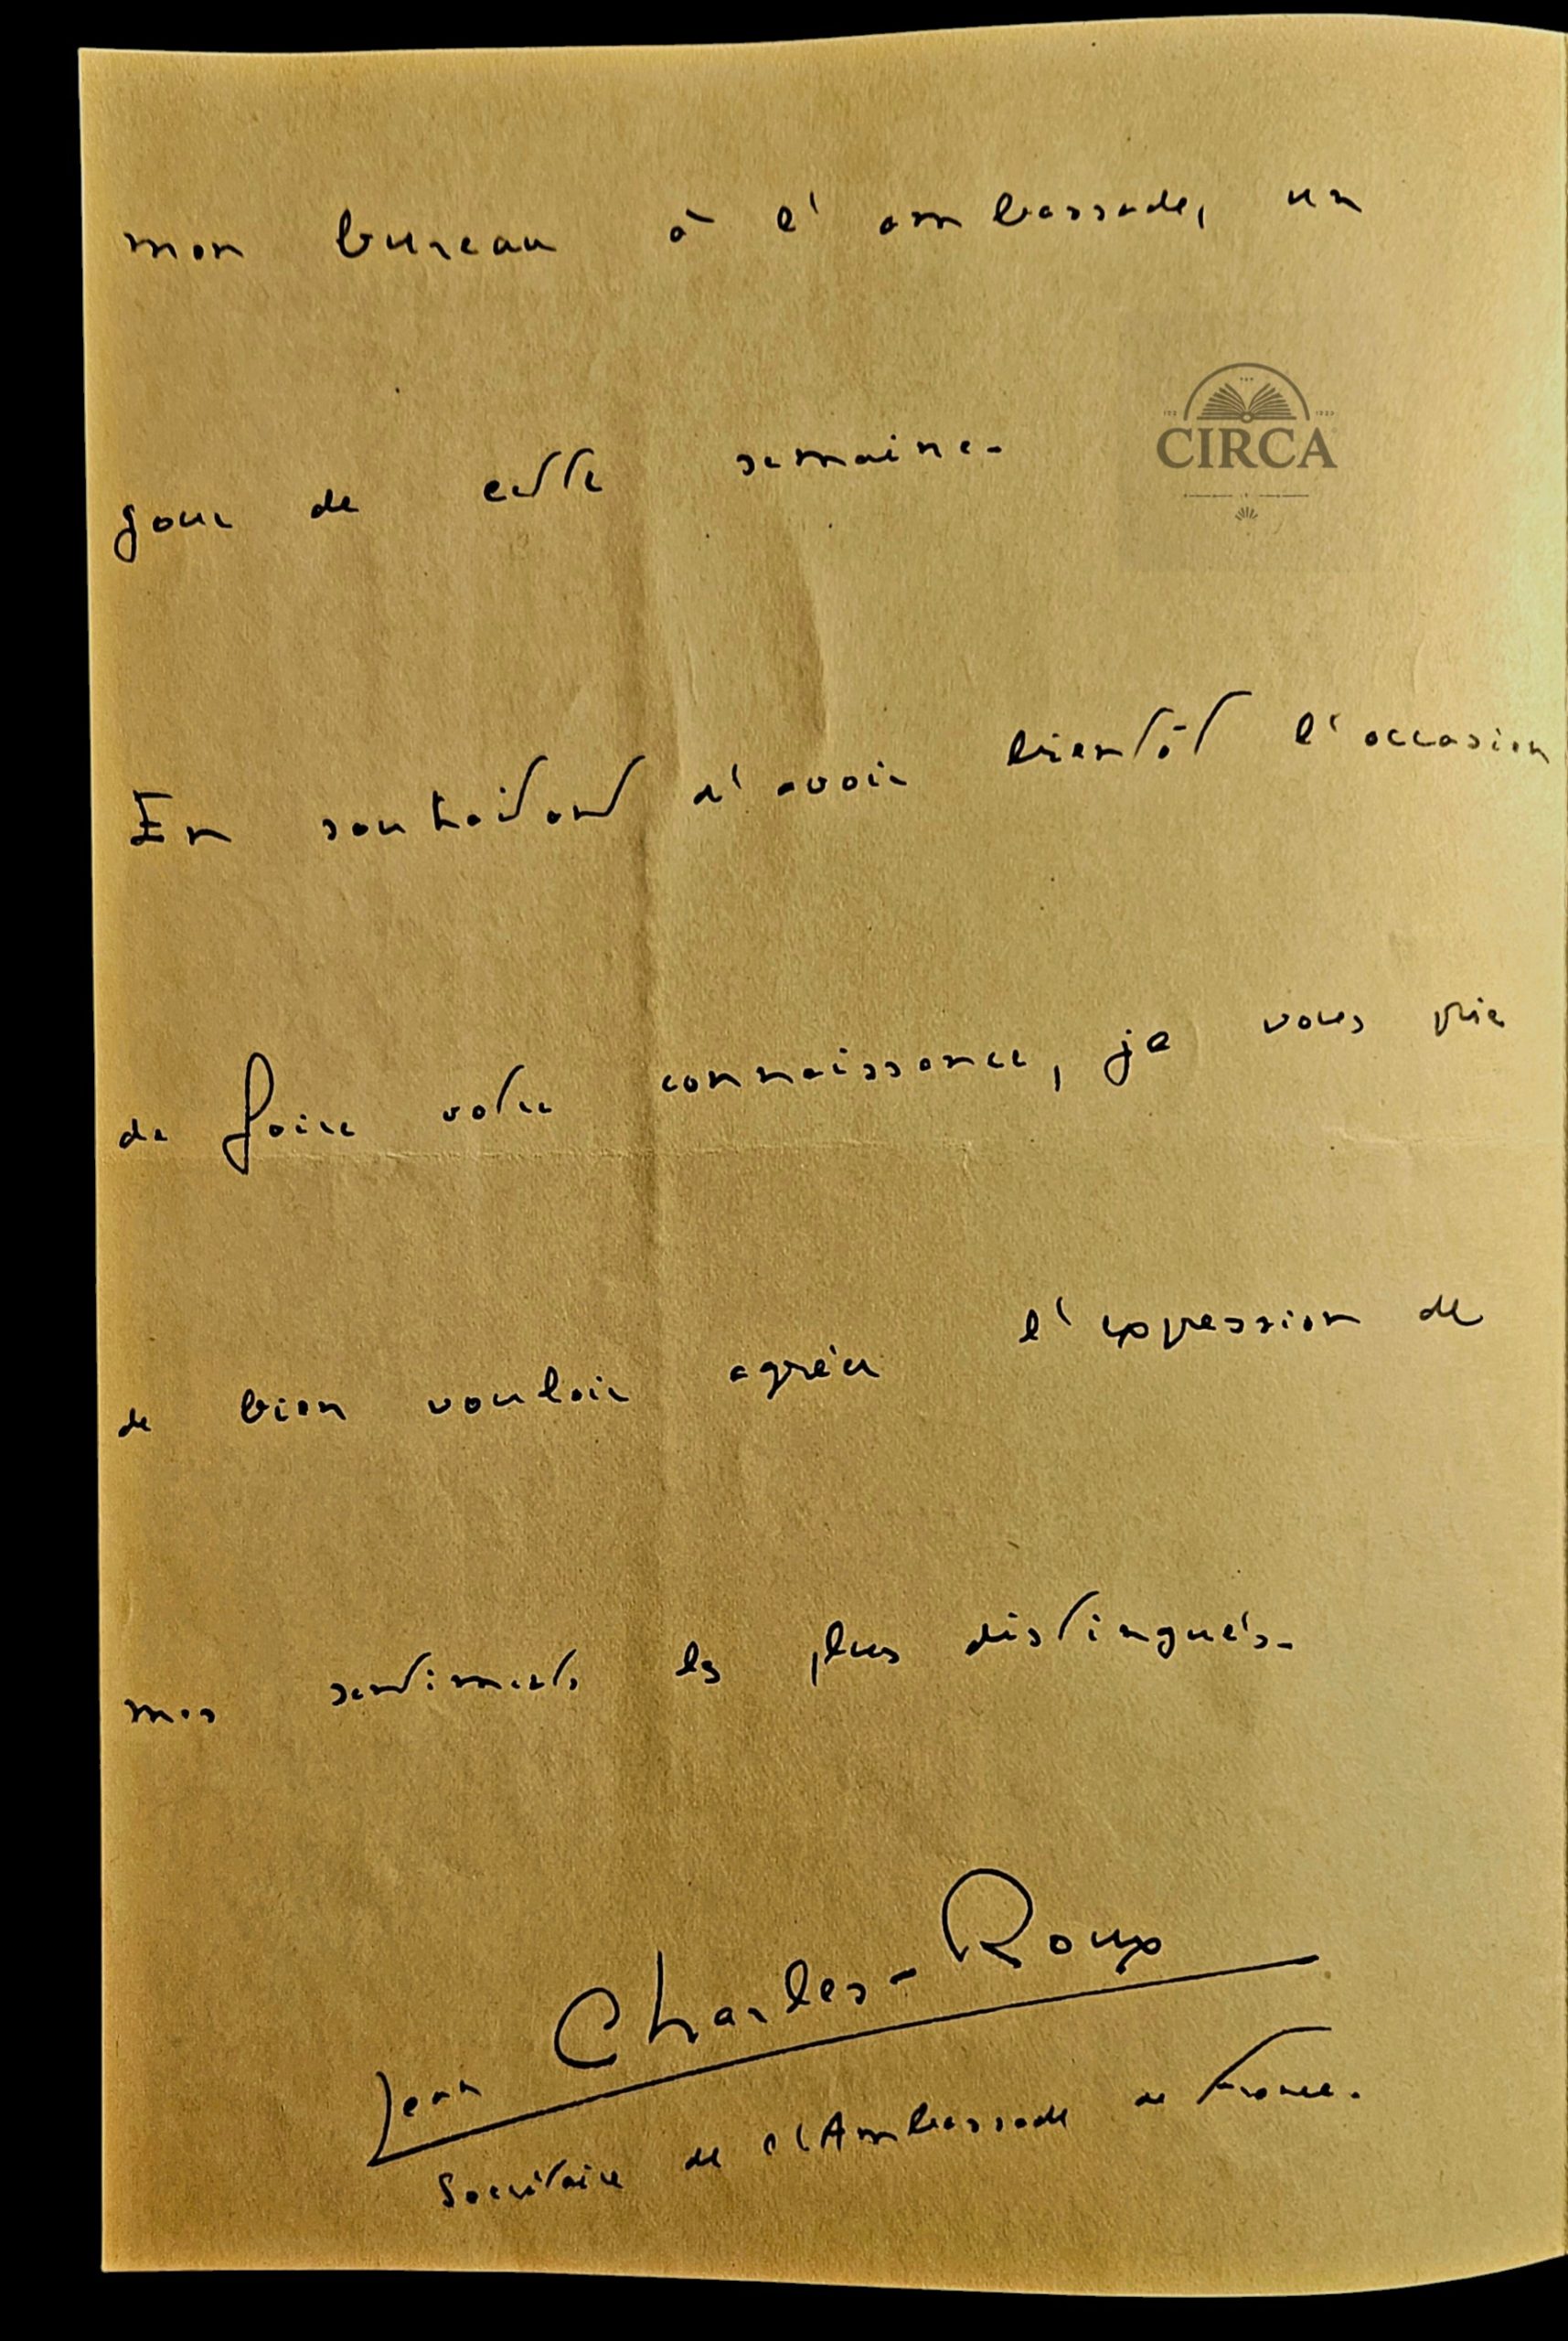 mon bureau à l'ambassade, un
CIRCA
jour de cette semaine.
En souhaitant d'avoir bientôt l'occasion
de faire votre connaissance, je vous prie
de bien vouloir agréer l'expression de
mes sentiments les plus distingués.
Jean Charles-Roux
Secrétaire de l'Ambassade de France.